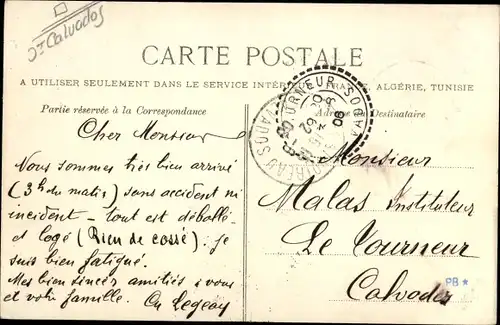 Jr Calvados
CARTE POSTALE
A UTILISER SEULEMENT DANS LE SERVICE INTÉRIEUR, FRANCE, ALGÉRIE, TUNISIE
Partie réservée à la Correspondance
Adresse du Destinataire
TOURNEUR
Cher Monsieur
Nous sommes très bien arrivé
(3h du matin) sans accident ni
incident - tout est déballé
et logé (Rien de cassé) : je
suis bien fatigué.
Mes bien sincères amitiés à vous
et votre famille. Ch Legeay
Monsieur
Malas Instituteur
Le Tourneur
Calvados
PB *